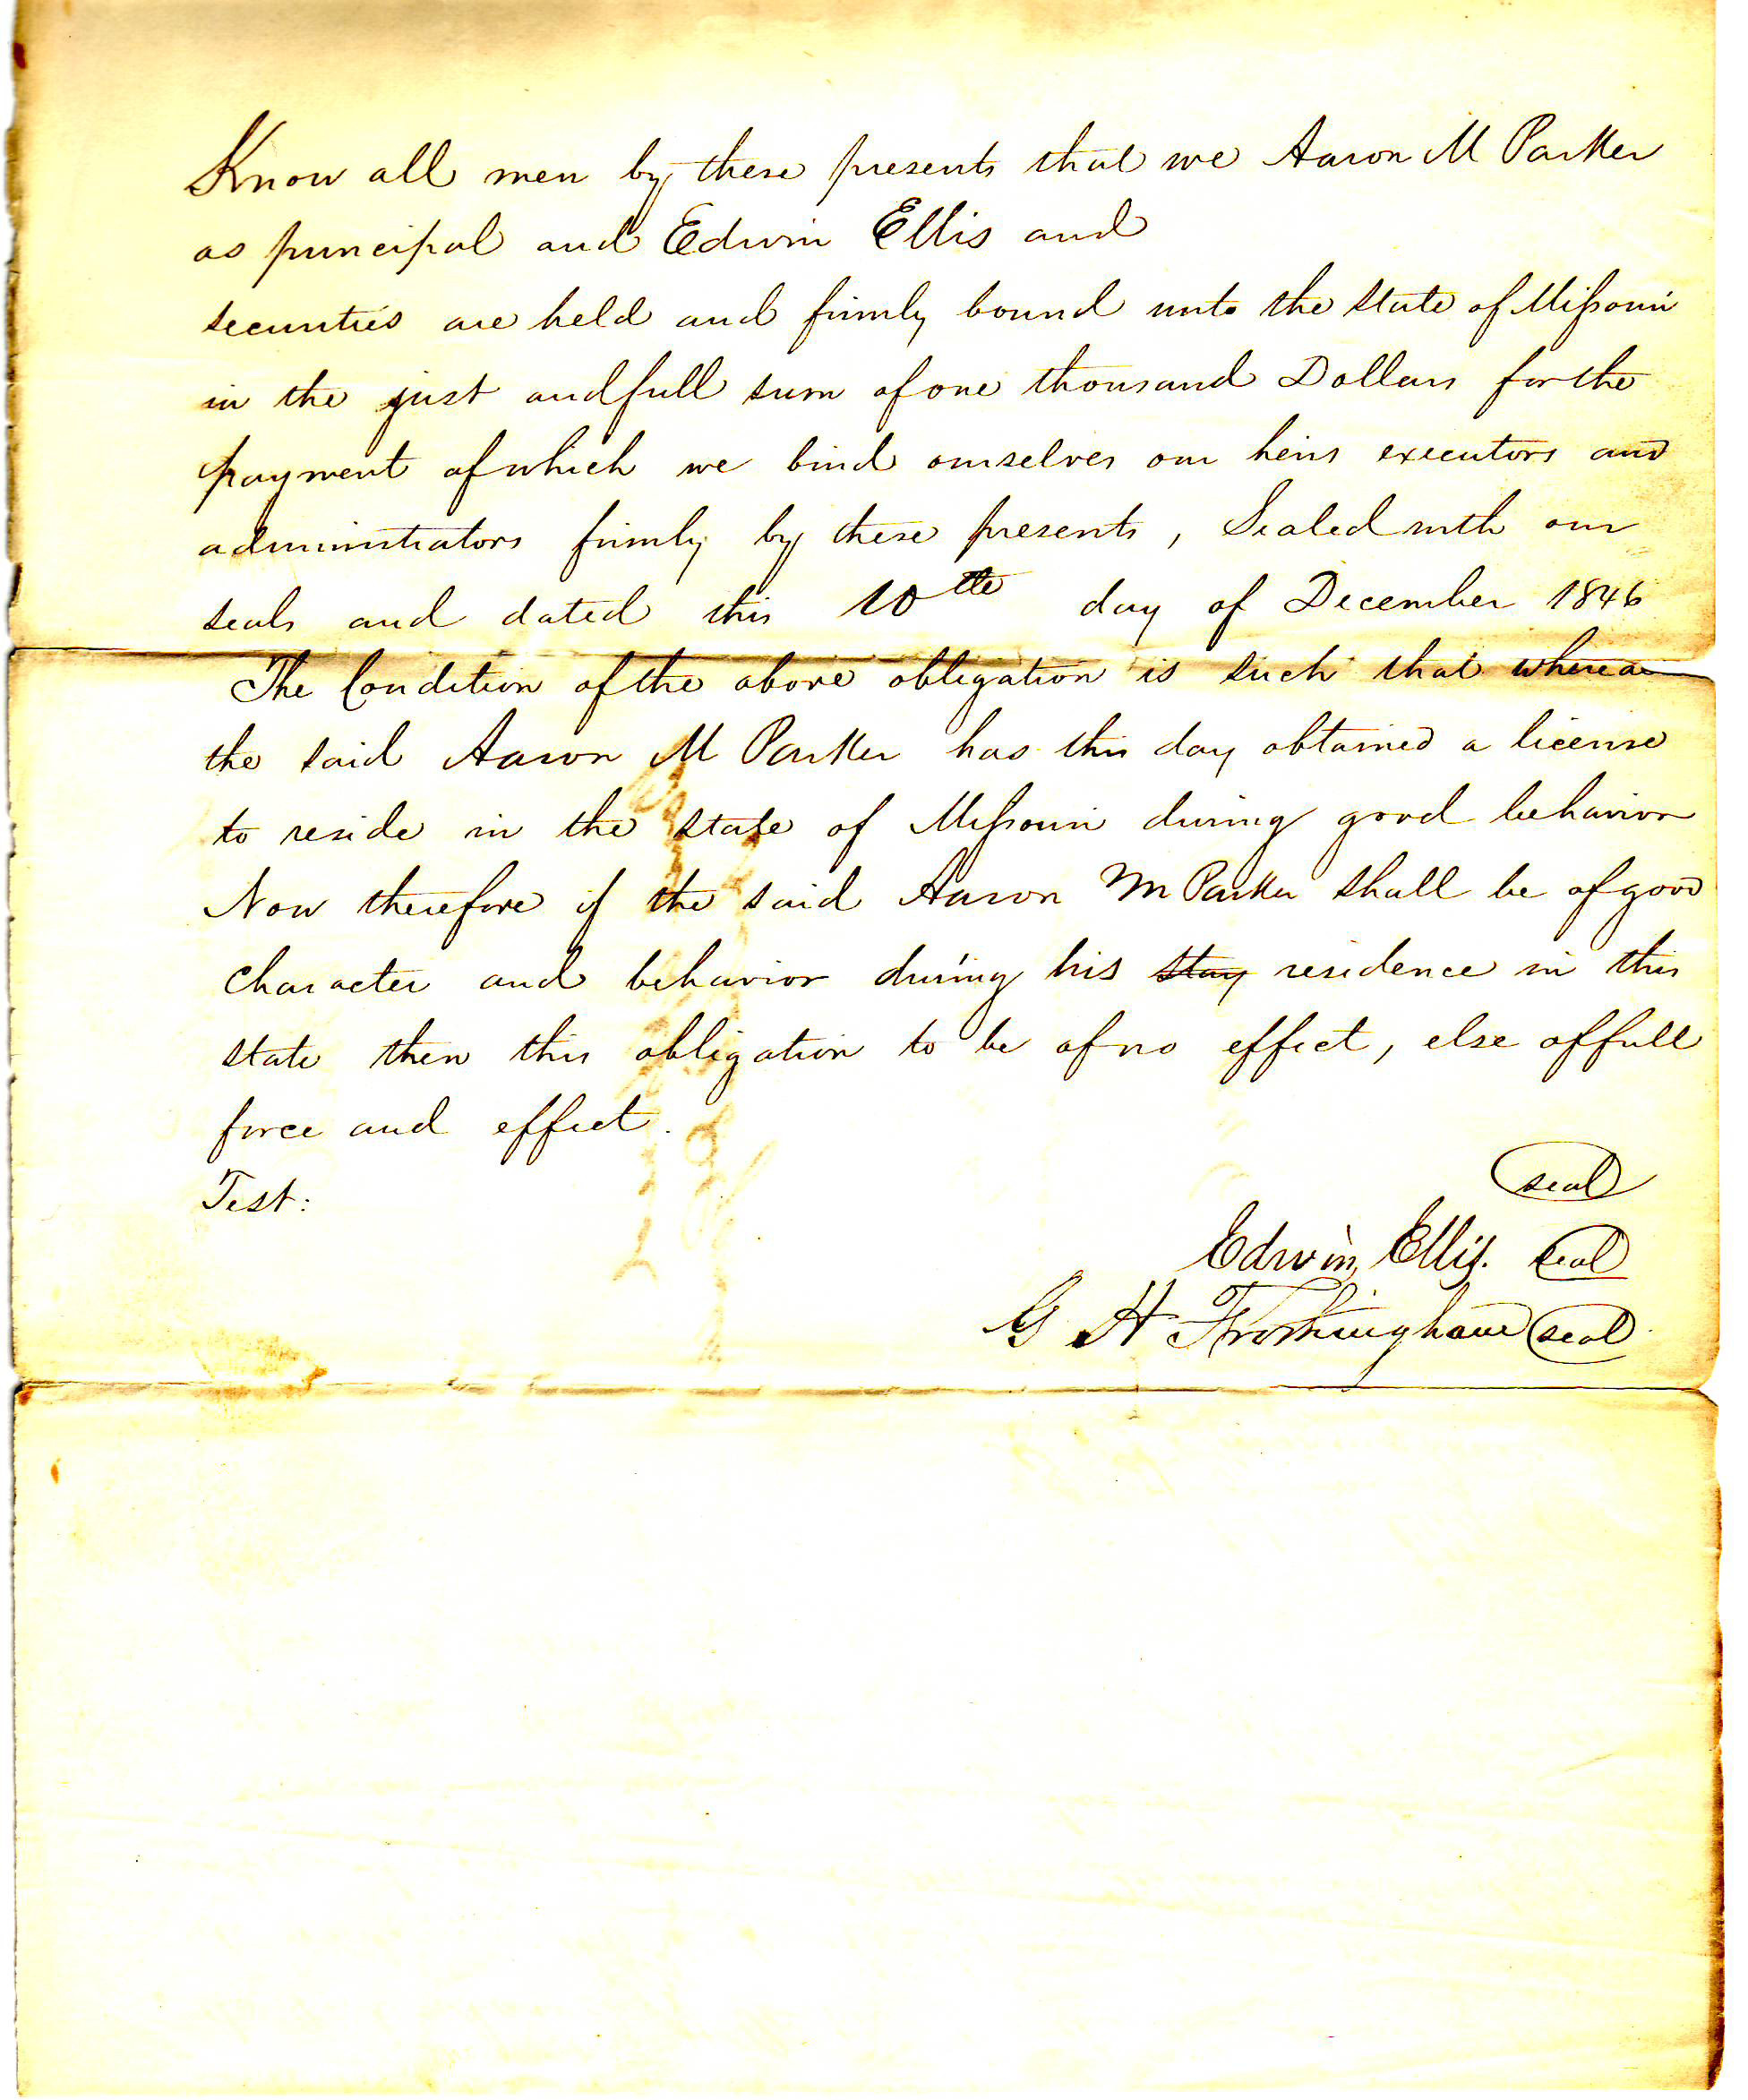 Know all men by these presents that we Aaron M Parker
as principal and Edwin Ellis and
securities are held and firmly bound unto the state of Missouri
in the just and full sum of one thousand Dollars for the
payment of which we bind ourselves our heirs executors and
administrators firmly by these presents, Sealed with our
seals and dated this 10th day of December 1846
The Condition of the above obligation is such that whereas
the said Aaron M Parker has this day obtained a license
to reside in the state of Missouri during good behavior
Now therefore if the said Aaron M Parker shall be of good
character and behavior during his stay residence in this
state then this obligation to be of no effect, else of full
force and effect.
Test:
seal
Edwin Ellis. seal
G H Frothingham seal